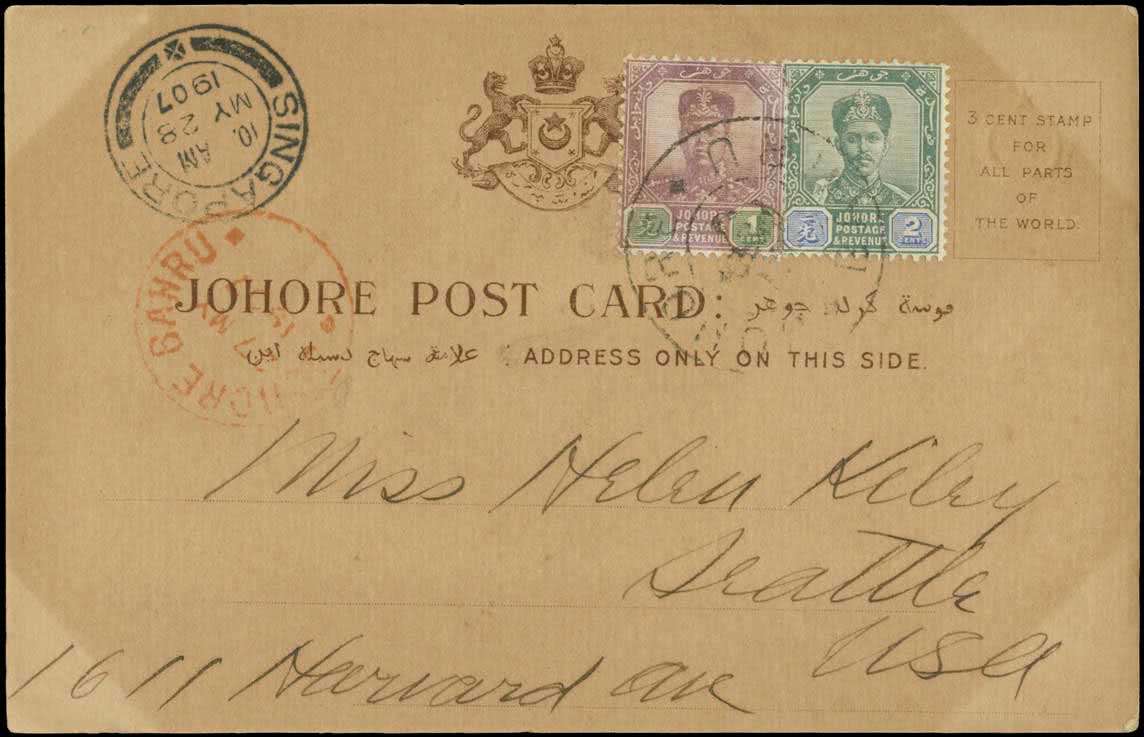 SINGAPORE
10. AM
MY 28
1907
جوهر
JOHORE
POSTAGE
& REVENUE
1
CENT
جوهر
JOHORE
POSTAGE
& REVENUE
2
CENTS
3 CENT STAMP
FOR
ALL PARTS
OF
THE WORLD.
JOHORE BAHRU
JOHORE POST CARD: جوهر
ADDRESS ONLY ON THIS SIDE.
Miss Helen Kiley
Seattle
USA
1611 Harvard ave